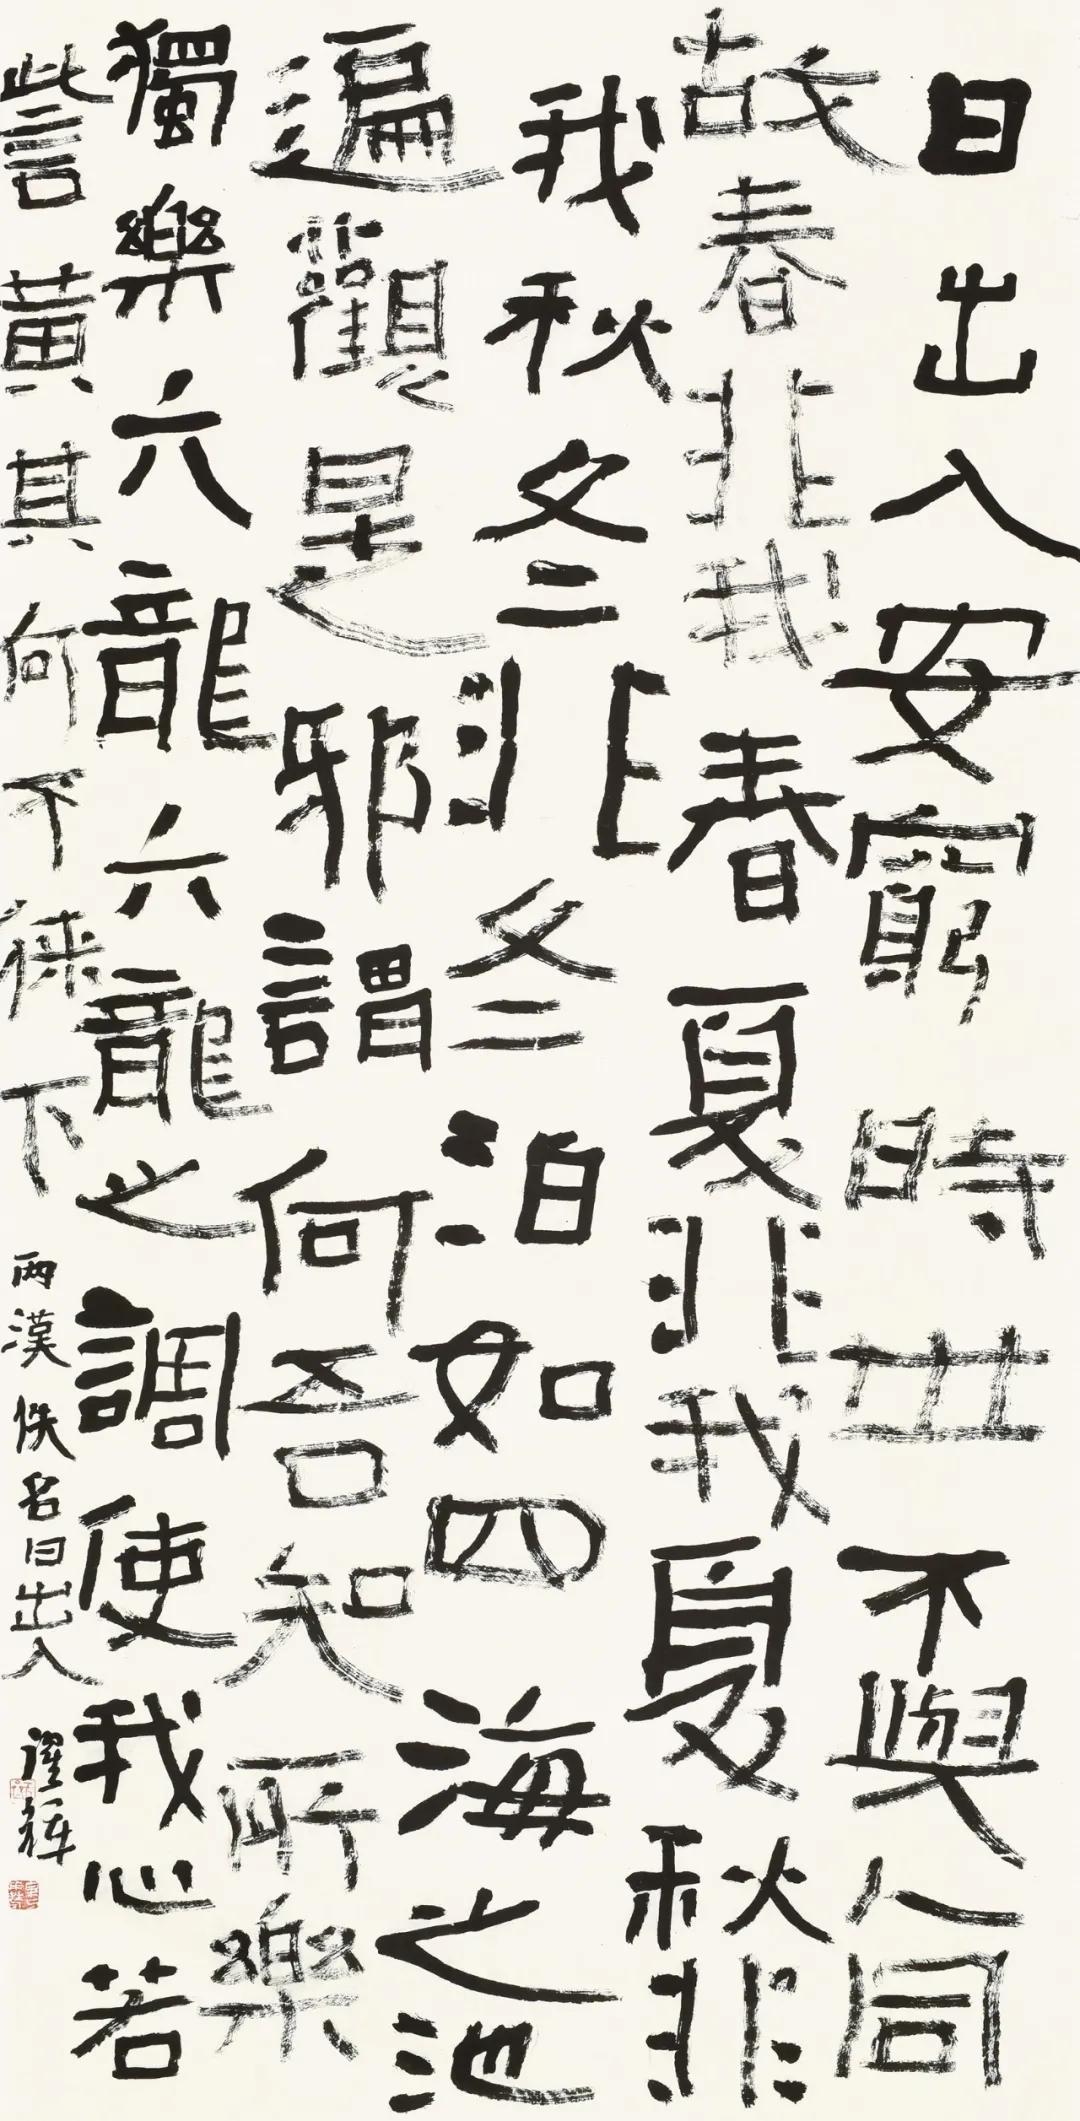 日出入安窮時世不與人同
故春非我春夏非我夏秋非
我秋冬非冬泊如四海之池
遍觀是邪謂何吾知所樂
獨樂六龍六龍之調使我心若
訾黃其何不徠下 兩漢佚名日出入